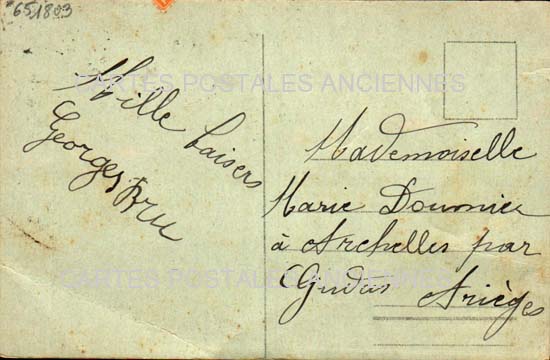 651803
CARTES POSTALES ANCIENNES
Mille baisers
Georges Bru
Mademoiselle
Marie Doumnie
à Archelles par
Gudas Arièges
CARTES POSTALES ANCIENNES